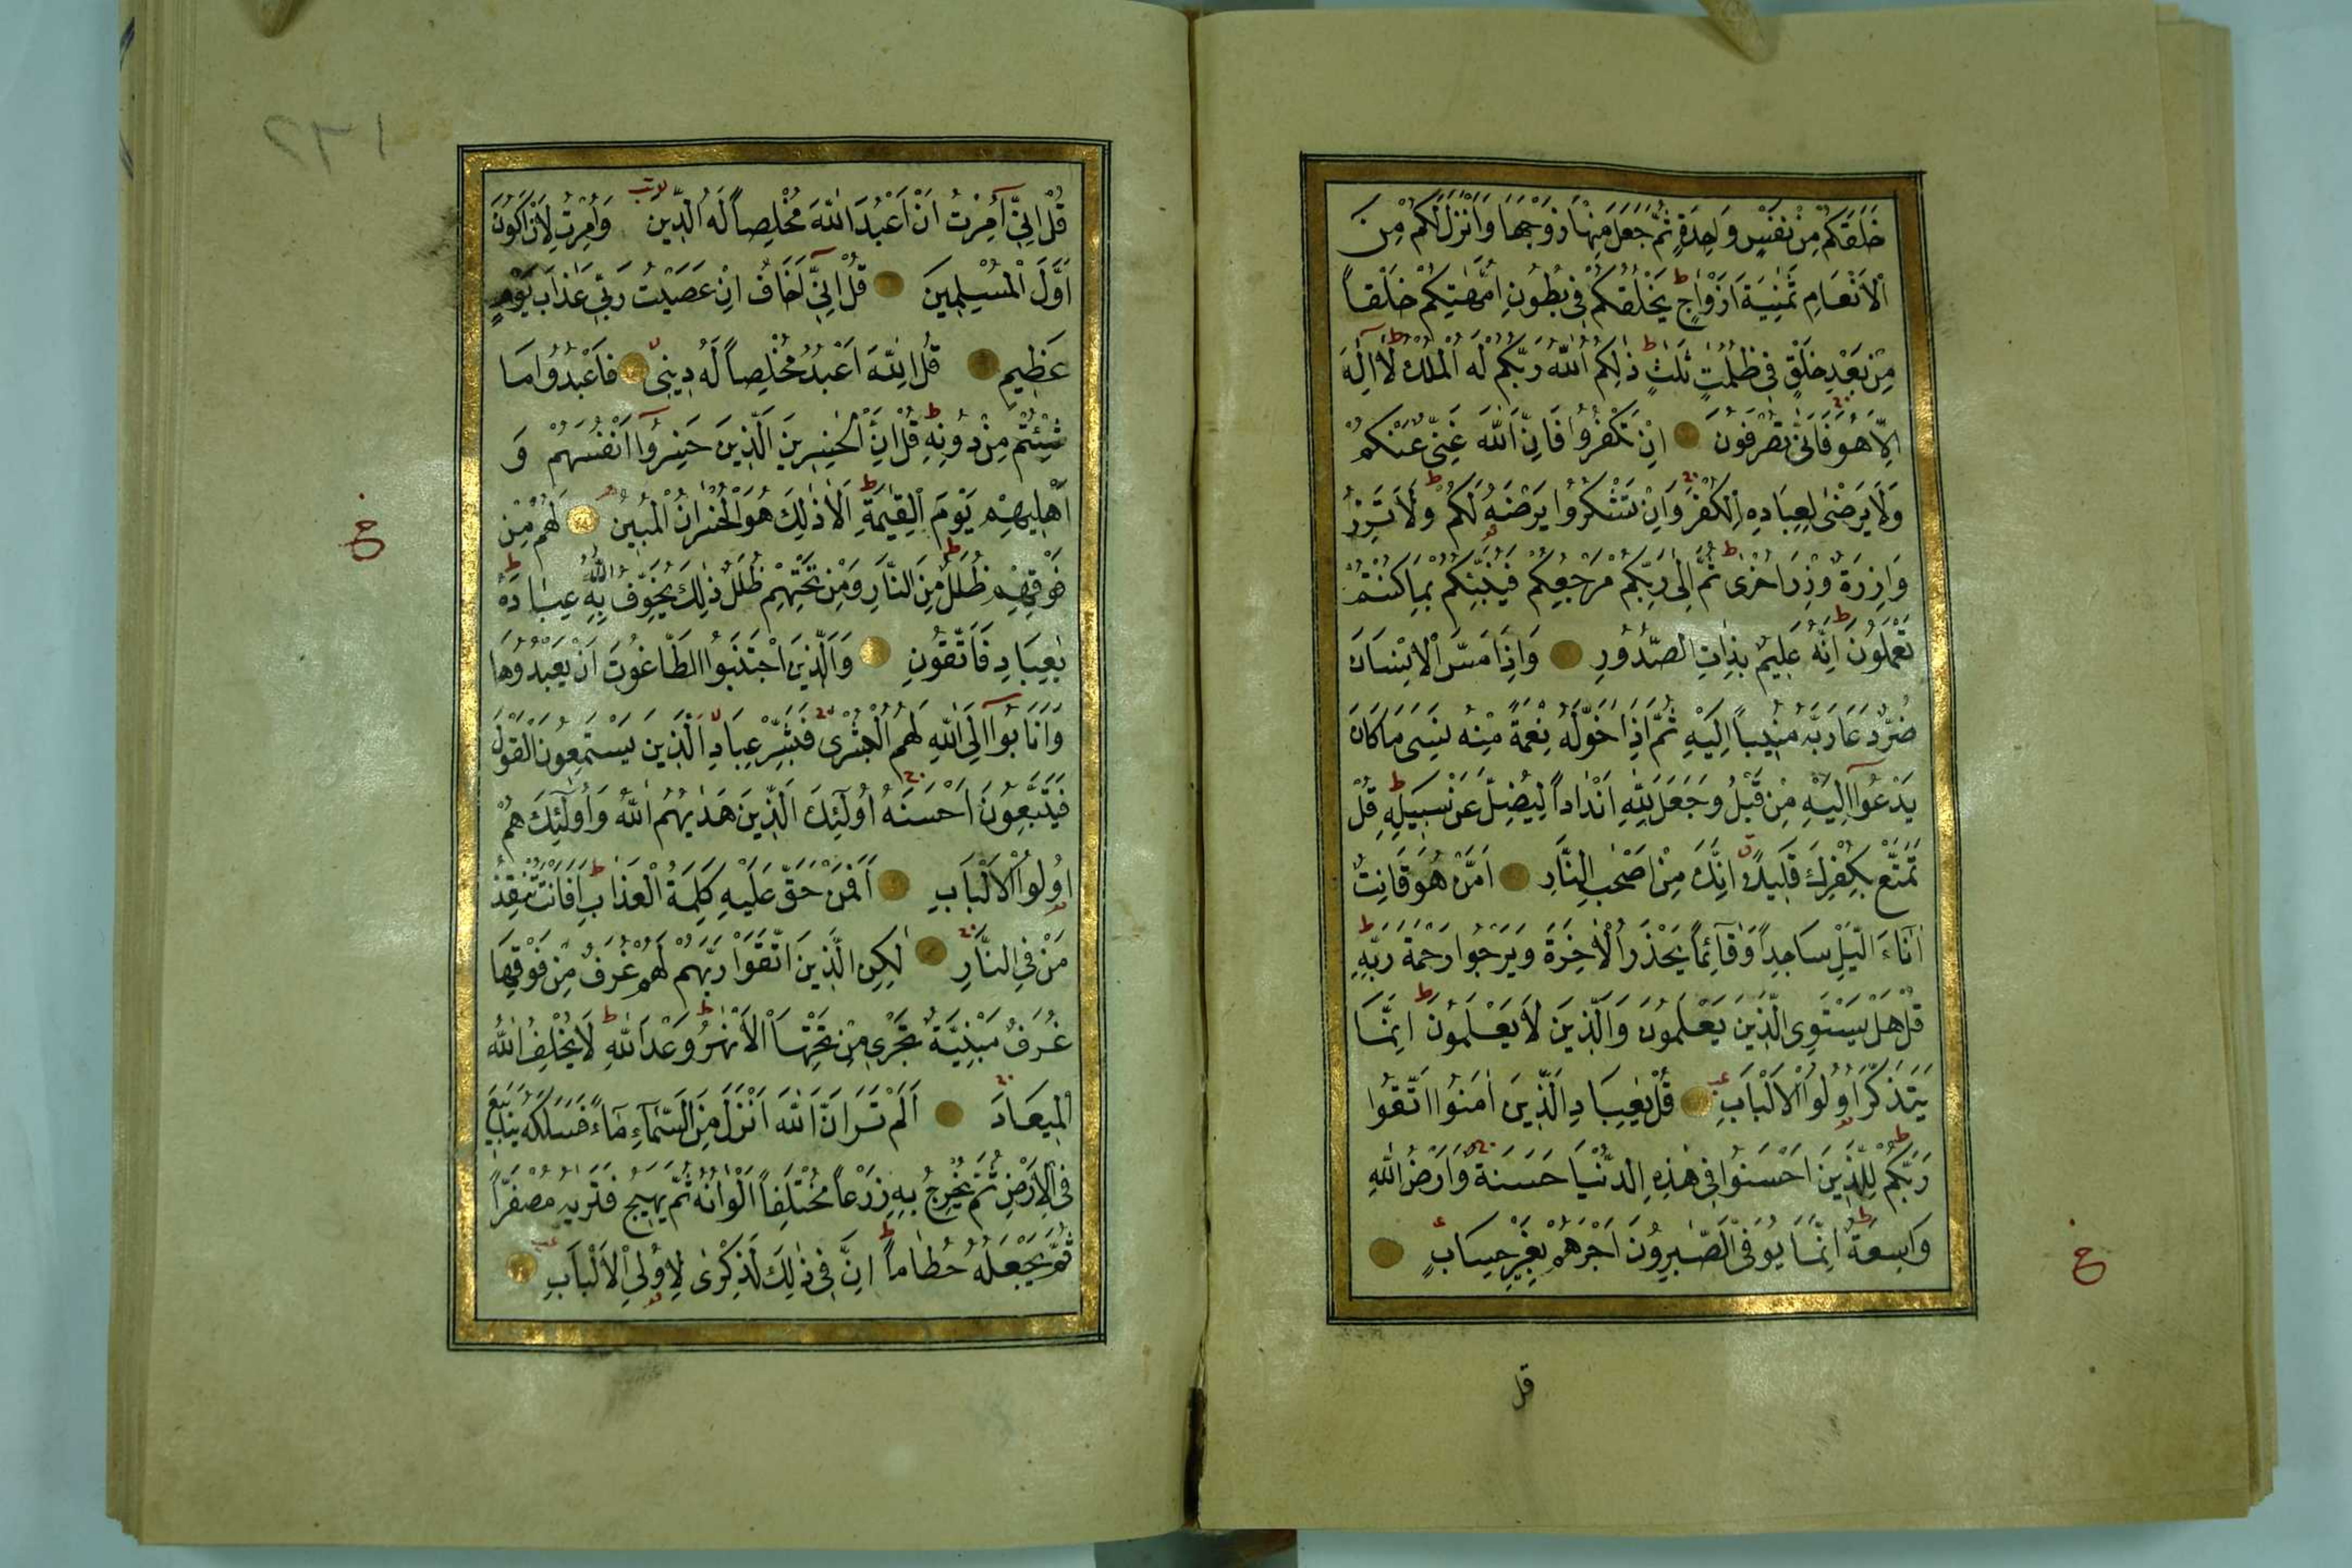 خَلَقَكُمْ مِنْ نَفْسٍ وَاحِدَةٍ ثُمَّ جَعَلَ مِنْهَا زَوْجَهَا وَاَنْزَلَ لَكُمْ مِنَ
الْاَنْعَامِ ثَمٰنِيَةَ اَزْوَاجٍ يَخْلُقُكُمْ فِى بُطُونِ اُمَّهٰتِكُمْ خَلْقاً
مِنْ بَعْدِ خَلْقٍ فِى ظُلُمٰتٍ ثَلٰثٍ ذٰلِكُمُ اللّٰهُ رَبُّكُمْ لَهُ الْمُلْكُ لَٓا اِلٰهَ
اِلَّا هُوَ فَاَنّٰى تُصْرَفُونَ اِنْ تَكْفُرُوا فَاِنَّ اللّٰهَ غَنِىٌّ عَنْكُمْ
وَلَا يَرْضٰى لِعِبَادِهِ الْكُفْرَ وَاِنْ تَشْكُرُوا يَرْضَهُ لَكُمْ وَلَا تَزِرُ
وَازِرَةٌ وِزْرَ اُخْرٰى ثُمَّ اِلٰى رَبِّكُمْ مَرْجِعُكُمْ فَيُنَبِّئُكُمْ بِمَا كُنْتُمْ
تَعْمَلُونَ اِنَّهُ عَلِيمٌ بِذَاتِ الصُّدُورِ وَاِذَا مَسَّ الْاِنْسَانَ
ضُرٌّ دَعَا رَبَّهُ مُنِيباً اِلَيْهِ ثُمَّ اِذَا خَوَّلَهُ نِعْمَةً مِنْهُ نَسِىَ مَا كَانَ
يَدْعُوٓا اِلَيْهِ مِنْ قَبْلُ وَجَعَلَ لِلّٰهِ اَنْدَاداً لِيُضِلَّ عَنْ سَبِيلِهِ قُلْ
تَمَتَّعْ بِكُفْرِكَ قَلِيلاً اِنَّكَ مِنْ اَصْحٰبِ النَّارِ اَمَّنْ هُوَ قَانِتٌ
اٰنَاءَ الَّيْلِ سَاجِداً وَقَٓائِماً يَحْذَرُ الْاٰخِرَةَ وَيَرْجُوا رَحْمَةَ رَبِّهِ
قُلْ هَلْ يَسْتَوِى الَّذِينَ يَعْلَمُونَ وَالَّذِينَ لَا يَعْلَمُونَ اِنَّمَا
يَتَذَكَّرُ اُولُوا الْاَلْبَابِ قُلْ يٰعِبَادِ الَّذِينَ اٰمَنُوا اتَّقُوا
رَبَّكُمْ لِلَّذِينَ اَحْسَنُوا فِى هٰذِهِ الدُّنْيَا حَسَنَةٌ وَاَرْضُ اللّٰهِ
وَاسِعَةٌ اِنَّمَا يُوَفَّى الصَّٰبِرُونَ اَجْرَهُمْ بِغَيْرِ حِسَابٍ
خ
قل
١٢٢
قُلْ اِنِّٓى اُمِرْتُ اَنْ اَعْبُدَ اللّٰهَ مُخْلِصاً لَهُ الدِّينَ وَاُمِرْتُ لِاَنْ اَكُونَ
اَوَّلَ الْمُسْلِمِينَ قُلْ اِنِّٓى اَخَافُ اِنْ عَصَيْتُ رَبِّى عَذَابَ يَوْمٍ
عَظِيمٍ قُلِ اللّٰهَ اَعْبُدُ مُخْلِصاً لَهُ دِينِى فَاعْبُدُوا مَا
شِئْتُمْ مِنْ دُونِهِ قُلْ اِنَّ الْخٰسِرِينَ الَّذِينَ خَسِرُوٓا اَنْفُسَهُمْ وَ
اَهْلِيهِمْ يَوْمَ الْقِيٰمَةِ اَلَا ذٰلِكَ هُوَ الْخُسْرَانُ الْمُبِينُ لَهُمْ مِنْ
فَوْقِهِمْ ظُلَلٌ مِنَ النَّارِ وَمِنْ تَحْتِهِمْ ظُلَلٌ ذٰلِكَ يُخَوِّفُ اللّٰهُ بِهِ عِبَادَهُ
يٰعِبَادِ فَاتَّقُونِ وَالَّذِينَ اجْتَنَبُوا الطَّاغُوتَ اَنْ يَعْبُدُوهَا
وَاَنَابُوٓا اِلَى اللّٰهِ لَهُمُ الْبُشْرٰى فَبَشِّرْ عِبَادِ الَّذِينَ يَسْتَمِعُونَ الْقَوْلَ
فَيَتَّبِعُونَ اَحْسَنَهُ اُولٰٓئِكَ الَّذِينَ هَدٰيهُمُ اللّٰهُ وَاُولٰٓئِكَ هُمْ
اُولُوا الْاَلْبَابِ اَفَمَنْ حَقَّ عَلَيْهِ كَلِمَةُ الْعَذَابِ اَفَاَنْتَ تُنْقِذُ
مَنْ فِى النَّارِ لٰكِنِ الَّذِينَ اتَّقَوْا رَبَّهُمْ لَهُمْ غُرَفٌ مِنْ فَوْقِهَا
غُرَفٌ مَبْنِيَّةٌ تَجْرِى مِنْ تَحْتِهَا الْاَنْهٰرُ وَعْدَ اللّٰهِ لَا يُخْلِفُ اللّٰهُ
الْمِيعَادَ اَلَمْ تَرَ اَنَّ اللّٰهَ اَنْزَلَ مِنَ السَّمَٓاءِ مَٓاءً فَسَلَكَهُ يَنَابِيعَ
فِى الْاَرْضِ ثُمَّ يُخْرِجُ بِهِ زَرْعاً مُخْتَلِفاً اَلْوَانُهُ ثُمَّ يَهِيجُ فَتَرٰيهُ مُصْفَرّاً
ثُمَّ يَجْعَلُهُ حُطَاماً اِنَّ فِى ذٰلِكَ لَذِكْرٰى لِاُولِى الْاَلْبَابِ
خ